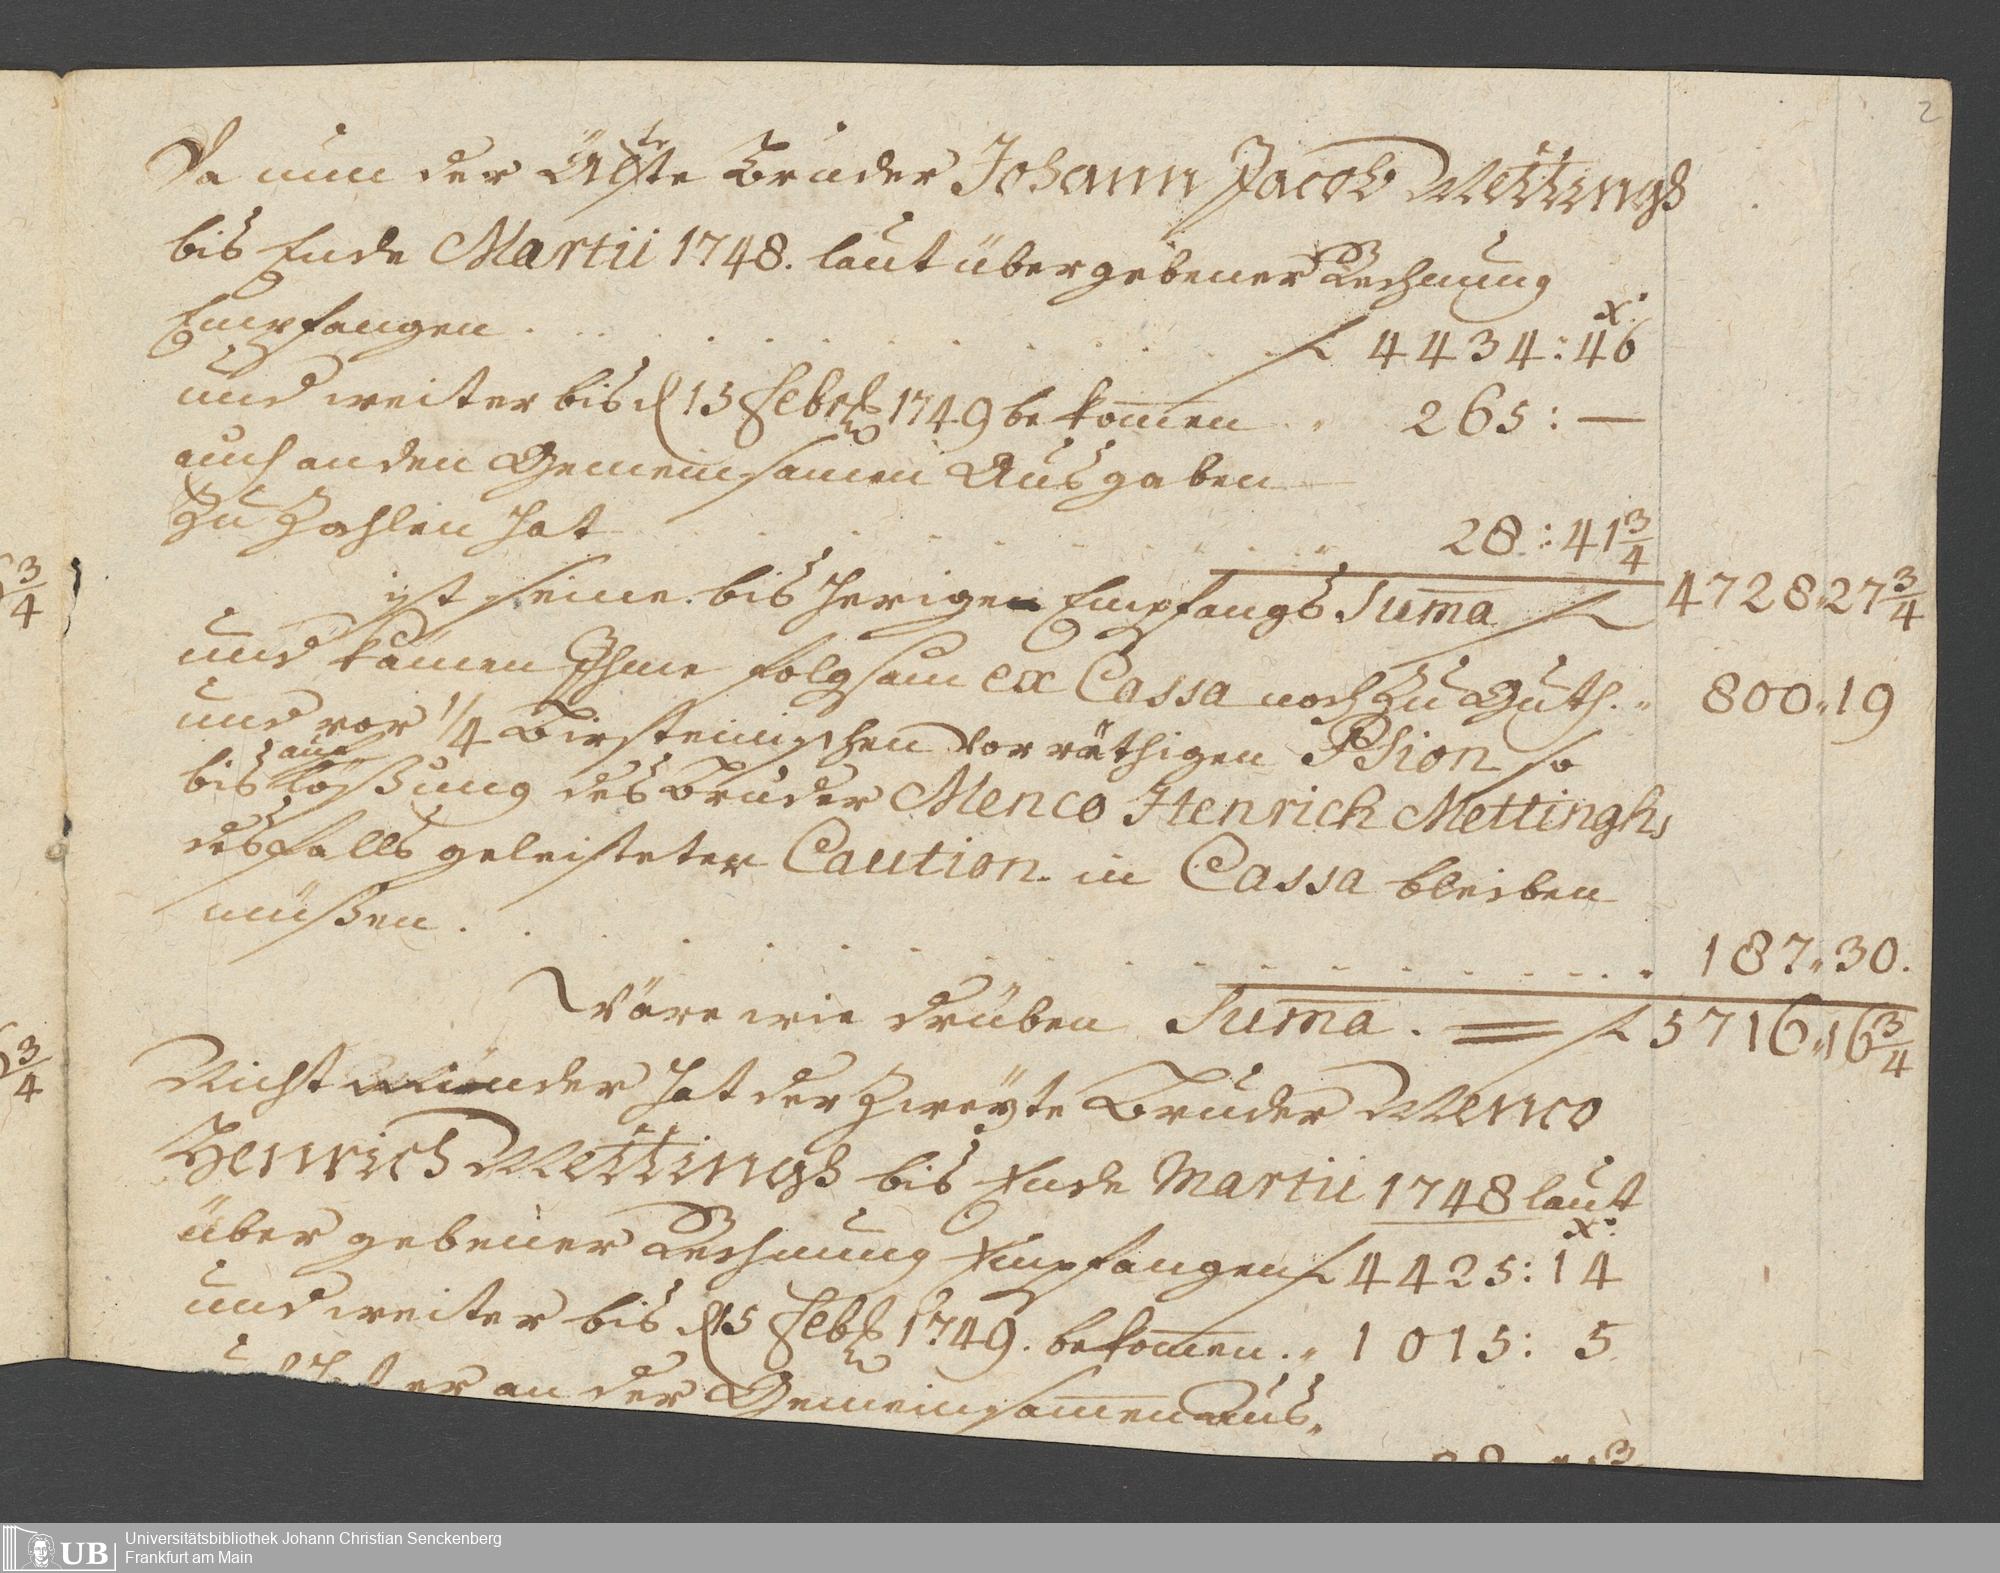 2
Da nun der Älste Bruder Johann Jacob Mettingh
bis Ende Martii 1748. laut übergebener Rechnung
x.
Empfangen . . . . . . . . . . . f 4434:46
und weiter bis d 15 Febr 1749 bekomen . „ 265: —
auch an den Gemeinsamen Ausgaben
zu Zahlen hat . . . . . . . . „ 28:41 3/4
ist seine bisherige Empfangs Suma f 4728„27 3/4
und kämen Ihme folgsam ex Cassa noch zu Guth. „ 800„19
und vor 1/4 Birsteinischen vorräthigen Psion so
bis auf lößung des Bruder Menco Henrich Mettinghs
desfalls geleisteter Caution in Cassa bleiben
müßen . . . . . . . . . . . . „ 187„30.
Wäre wie drüben Suma . = f 5716„16 3/4
Nicht minder hat der Zweyte Bruder Menco
Henrich Mettingh bis Ende Martii 1748 laut
x.
über gebener Rechnung Empfangen f 4425:14
und weiter bis d 15 Feb 1749. bekomen . „ 1015: 5
er an der Gemeinsamen Aus„
3/4
3/4
UB
Universitätsbibliothek Johann Christian Senckenberg
Frankfurt am Main